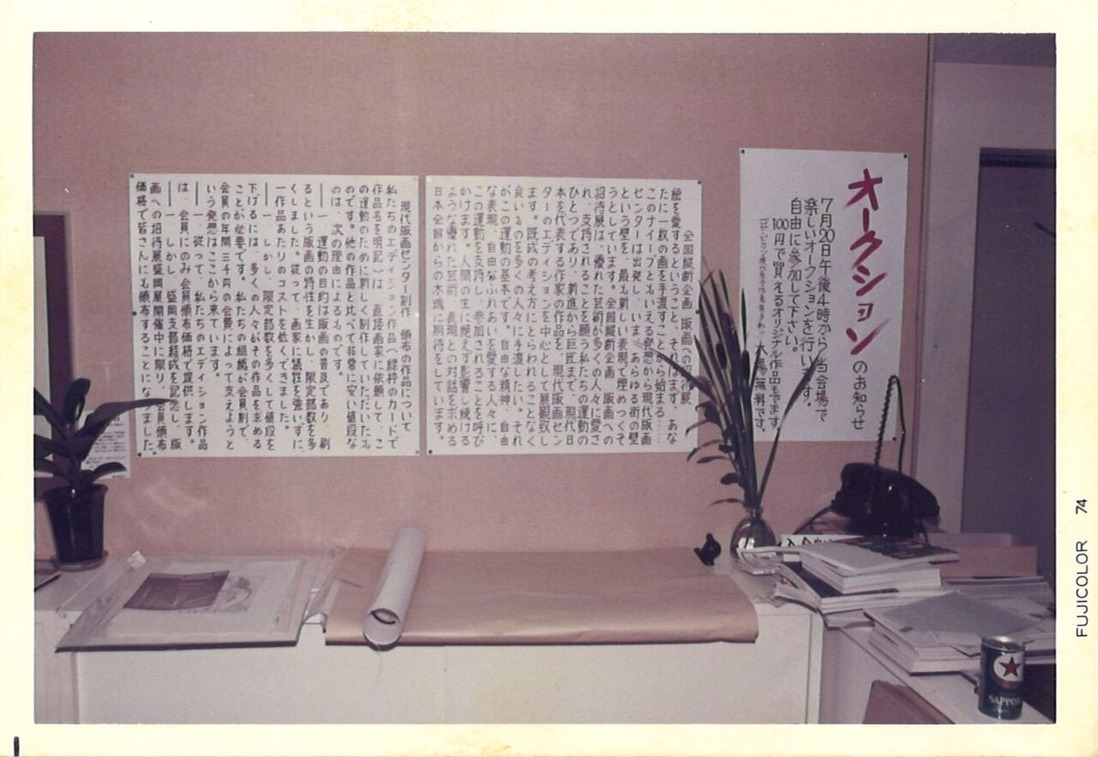 オークション のお知らせ
7月20日午後4時から 当会場で
楽しいオークションを行います。
自由に参加して下さい。
100円で買えるオリジナル作品もでます
入場無料です。
全国縦断企画 版画への招待展
壁を愛するということ、それはまず、あな
たに一枚の画を手渡すことから始まる……
このナイーブともいえる発想から現代版画
センターは出発し、いま、あらゆる街の壁
という壁を、最も新しい表現で埋めつくそ
うとしています。全国縦断企画、版画への
招待展は、優れた芸術が多くの人々に愛さ
れ、支持されることを願う私たちの運動の
ひとつであり、前進から巨匠まで、現代日
本を代表する作家の作品を、現代版画セン
ターのエディションを中心として展観致し
ます。既成の考え方にとらわれることなく
良いものを多くの人々に手渡したい、それ
がこの運動の基本です。自由な精神、自由
な表現、自由なふれあいを愛する人々に、
この運動を支持し、参加されることを呼び
かけます。人間の生に絶えず影響し続ける
ような優れた芸術、表現との対話を求める
日本全国からの木魂に期待をしています。
現代版画センター制作・頒布の作品について
私たちのエディション作品（緑枠のカードで
作品名を明記）は、直接画家に依頼して、こ
の運動のために新しく制作していただいたも
のです。他の作品と比べて非常に安い値段な
のは、次の理由によるものです。
一 運動の目的は版画の普及であり、刷
るという版画の特性を生かし、限定部数を多
くしました。従って、画家に犠牲を強いずに、
一作品あたりのコストを低くできました。
一 しかし、限定部数を多くして値段を
下げるには、多くの人々がその作品を求める
ことが必要です。私たちの組織が会員制で、
会員の年間三千円の会費によって支えようと
いう発想はここから来ています。
一 従って、私たちのエディション作品
は、会員にのみ会員頒布価格で提供します。
一 しかし、盛岡支部結成を記念し、版
画への招待展盛岡展開催中に限り、会員頒布
価格で皆さんにも頒布することになりました
SAPPORO
FUJICOLOR 74